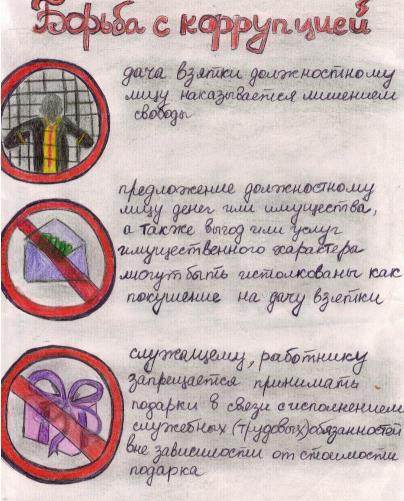 Борьба с коррупцией
дача взятки должностному
лицу наказывается лишением
свободы
предложение должностному
лицу денег или имущества,
а также выгод или услуг
имущественного характера
могут быть истолкованы как
покушение на дачу взятки
служащему, работнику
запрещается принимать
подарки в связи с исполнением
служебных (трудовых) обязанностей
вне зависимости от стоимости
подарка